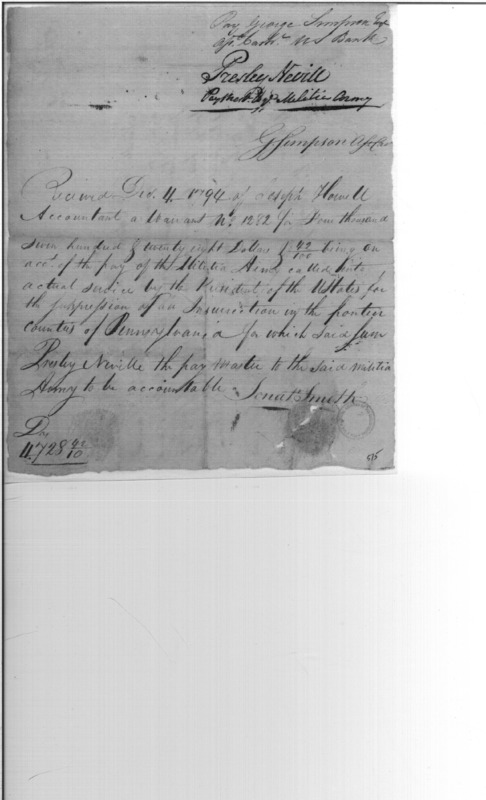 Pay George Simpson Esqr
Asst. Cashr. U S Bank
Presley Nevill
Paymastr. Militia Army
G Simpson Asst Cas
Received Dec. 4 1794 of Joseph Howell
Accountant a Warrant No. 1282 for Four thousand
Seven hundred & twenty eight Dollars & 42/100 being on
acct. of the pay of the Militia Army called into
actual service by the President of the UStates for
the suppression of an Insurrection in the frontier
Counties of Pennsylvania for which said Sum
Presley Neville the pay master to the said militia
Army to be accountable
Jonat Smith
Drs.
4,728 42/10
515